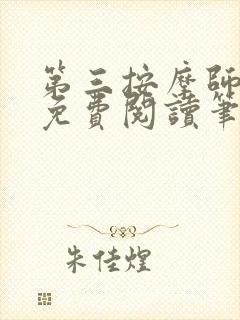 第三按摩師
免費閱讀筆
朱佳煌